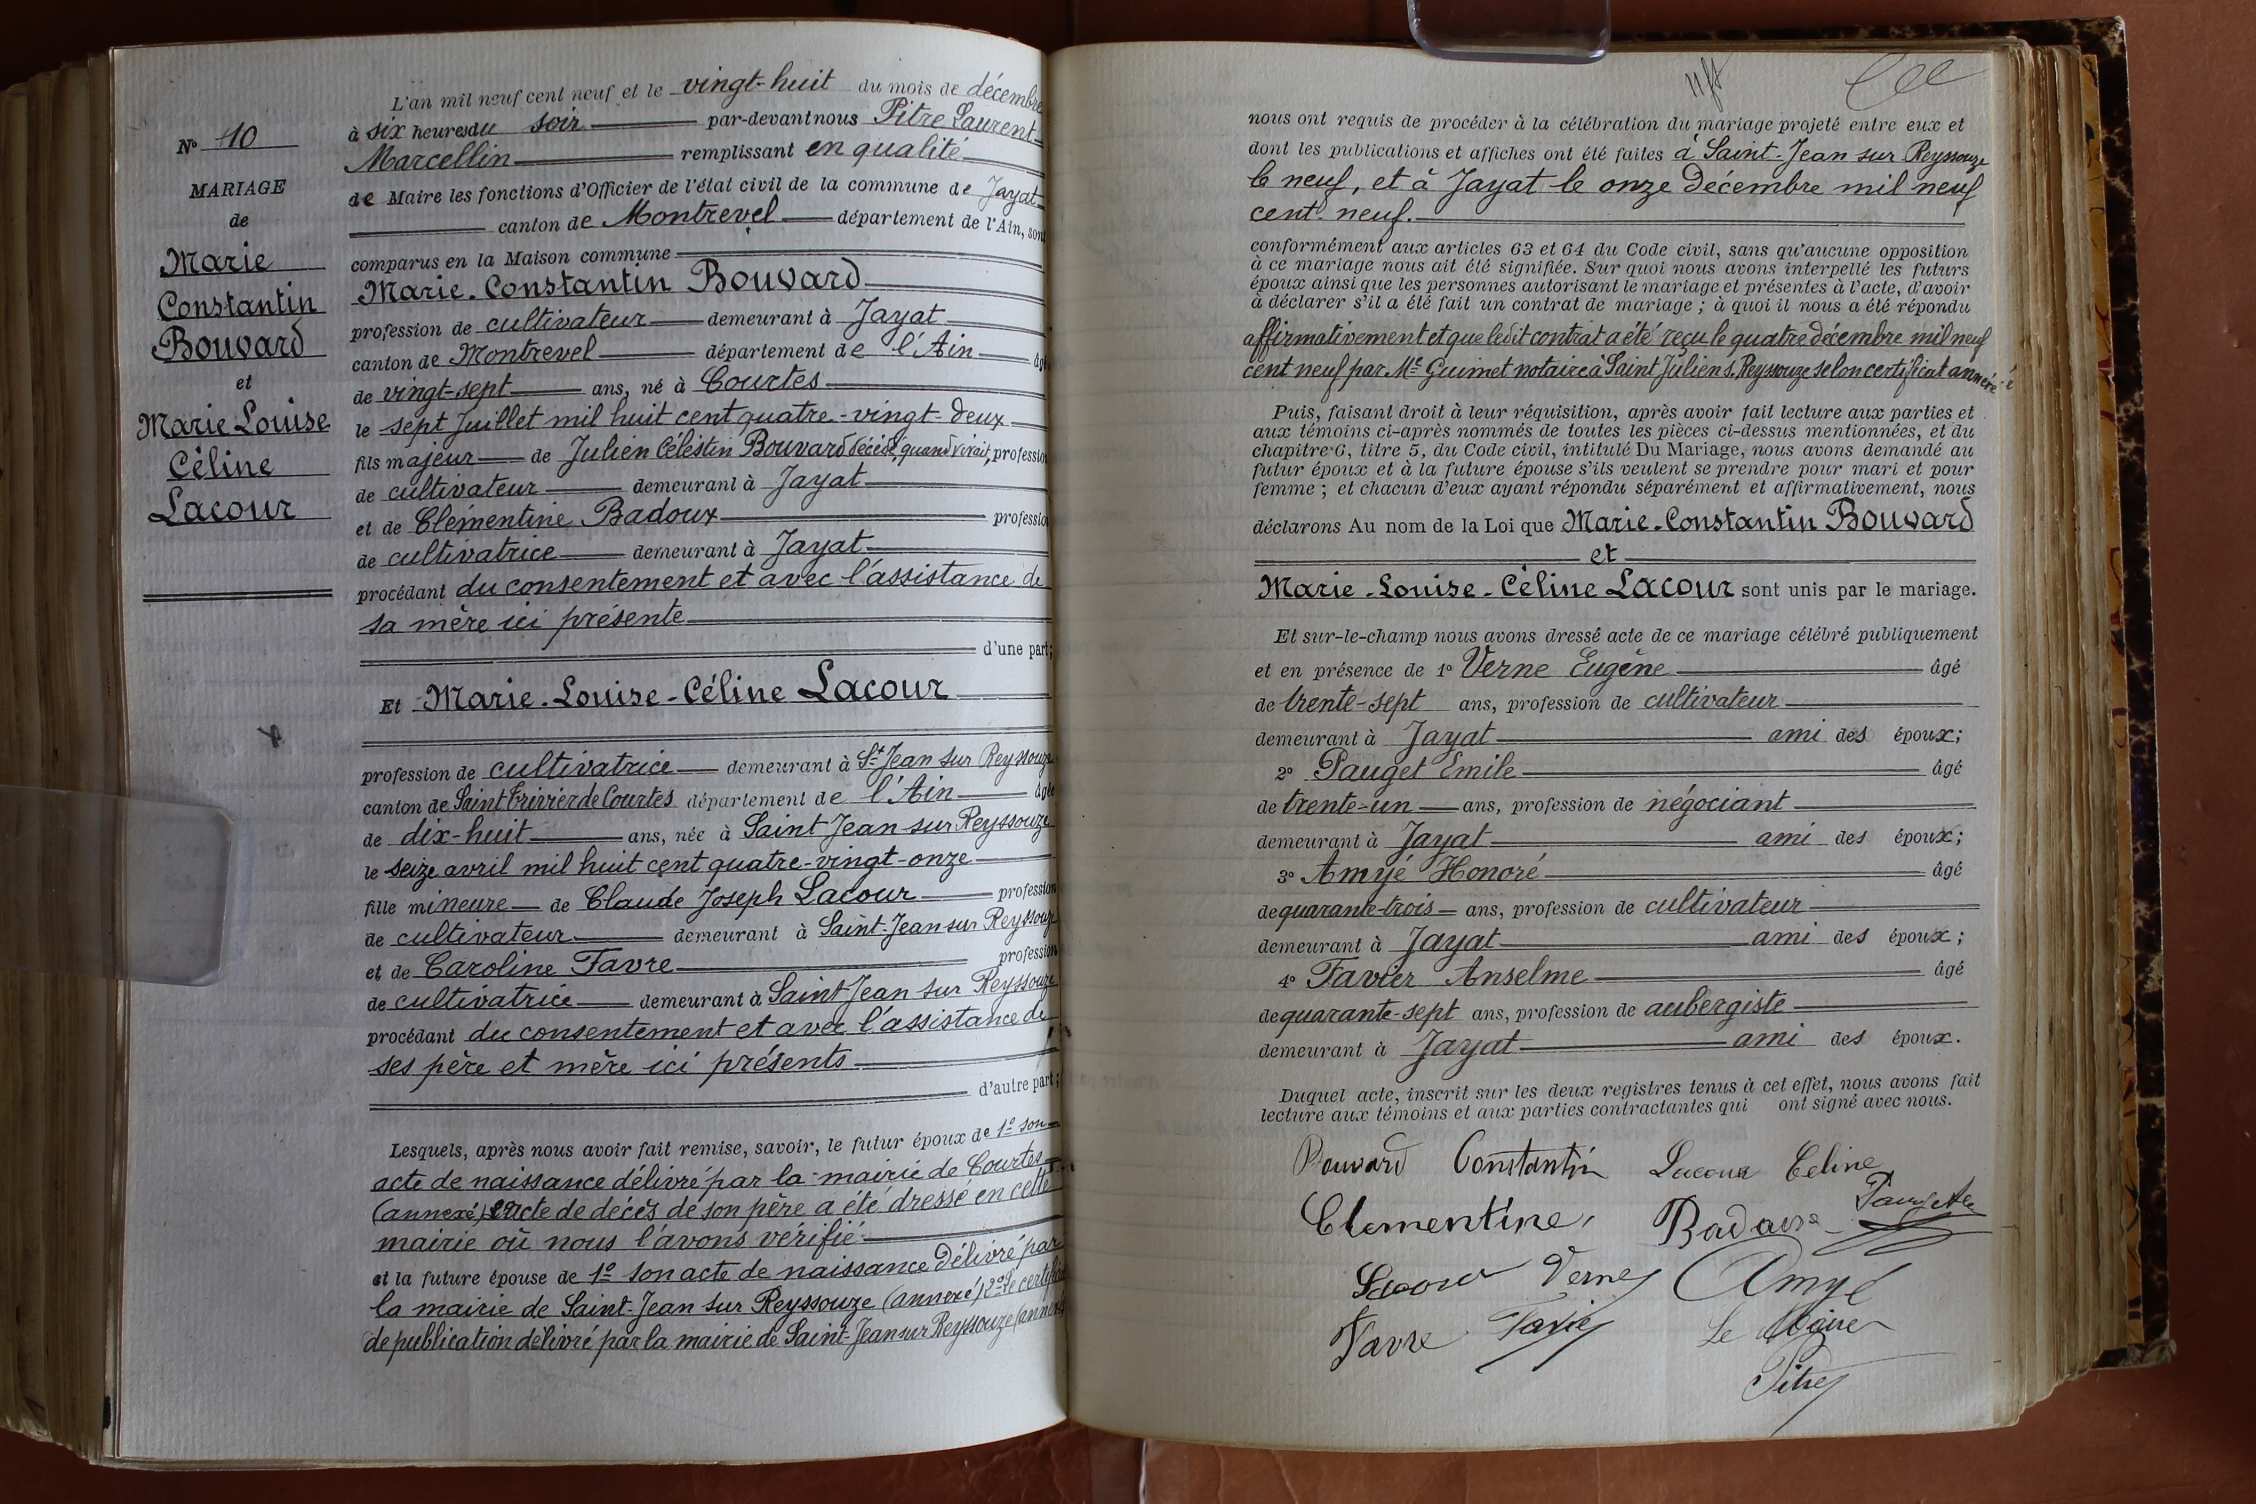 N° 10
MARIAGE
de
Marie
Constantin
Bouvard
et
Marie Louise
Céline
Lacour
L'an mil neuf cent neuf et le vingt-huit du mois de décembre
à six heures du soir par-devant nous Pitre Laurent
Marcellin remplissant en qualité
de Maire les fonctions d'Officier de l'état civil de la commune de Jayat
canton de Montrevel département de l'Ain, sont
comparus en la Maison commune
Marie-Constantin Bouvard
profession de cultivateur demeurant à Jayat
canton de Montrevel département de l'Ain âgé
de vingt-sept ans, né à Courtes
le sept Juillet mil huit cent quatre-vingt-deux
fils majeur de Julien Célestin Bouvard décédé, quand vivait, profession
de cultivateur demeurant à Jayat
et de Clémentine Badoux profession
de cultivatrice demeurant à Jayat
procédant du consentement et avec l'assistance de
sa mère ici présente
d'une part;
Et Marie-Louise-Céline Lacour
profession de cultivatrice demeurant à St Jean sur Reyssouze
canton de Saint Trivier de Courtes département de l'Ain âgée
de dix-huit ans, née à Saint Jean sur Reyssouze
le seize avril mil huit cent quatre-vingt-onze
fille mineure de Claude Joseph Lacour profession
de cultivateur demeurant à Saint-Jean sur Reyssouze
et de Caroline Favre profession
de cultivatrice demeurant à Saint Jean sur Reyssouze
procédant du consentement et avec l'assistance de
ses père et mère ici présents
d'autre part;
Lesquels, après nous avoir fait remise, savoir, le futur époux de 1° son
acte de naissance délivré par la mairie de Courtes
(annexé) acte de décès de son père a été dressé en cette
mairie où nous l'avons vérifié
et la future épouse de 1° son acte de naissance délivré par
la mairie de Saint-Jean sur Reyssouze (annexé) 2° le certificat
de publication délivré par la mairie de Saint-Jean sur Reyssouze (annexé)
nous ont requis de procéder à la célébration du mariage projeté entre eux et
dont les publications et affiches ont été faites à Saint-Jean sur Reyssouze
le neuf, et à Jayat le onze décembre mil neuf
cent neuf.
conformément aux articles 63 et 64 du Code civil, sans qu'aucune opposition
à ce mariage nous ait été signifiée. Sur quoi nous avons interpellé les futurs
époux ainsi que les personnes autorisant le mariage et présentes à l'acte, d'avoir
à déclarer s'il a été fait un contrat de mariage; à quoi il nous a été répondu
affirmativement et que ledit contrat a été reçu le quatre décembre mil neuf
cent neuf par Me Guimet notaire à Saint Julien s. Reyssouze selon certificat annexé
Puis, faisant droit à leur réquisition, après avoir fait lecture aux parties et
aux témoins ci-après nommés de toutes les pièces ci-dessus mentionnées, et du
chapitre 6, titre 5, du Code civil, intitulé Du Mariage, nous avons demandé au
futur époux et à la future épouse s'ils veulent se prendre pour mari et pour
femme; et chacun d'eux ayant répondu séparément et affirmativement, nous
déclarons Au nom de la Loi que Marie-Constantin Bouvard
et
Marie-Louise-Céline Lacour sont unis par le mariage.
Et sur-le-champ nous avons dressé acte de ce mariage célébré publiquement
et en présence de 1° Verne Eugène âgé
de trente-sept ans, profession de cultivateur
demeurant à Jayat ami des époux;
2° Pauget Emile âgé
de trente-un ans, profession de négociant
demeurant à Jayat ami des époux;
3° Amyé Honoré âgé
de quarante-trois ans, profession de cultivateur
demeurant à Jayat ami des époux;
4° Favier Anselme âgé
de quarante-sept ans, profession de aubergiste
demeurant à Jayat ami des époux.
Duquel acte, inscrit sur les deux registres tenus à cet effet, nous avons fait
lecture aux témoins et aux parties contractantes qui ont signé avec nous.
Bouvard Constantin Lacour Celine
Clementine Badoux
Lacour Verne Amyé
Favre Favier Le Maire
Pitre